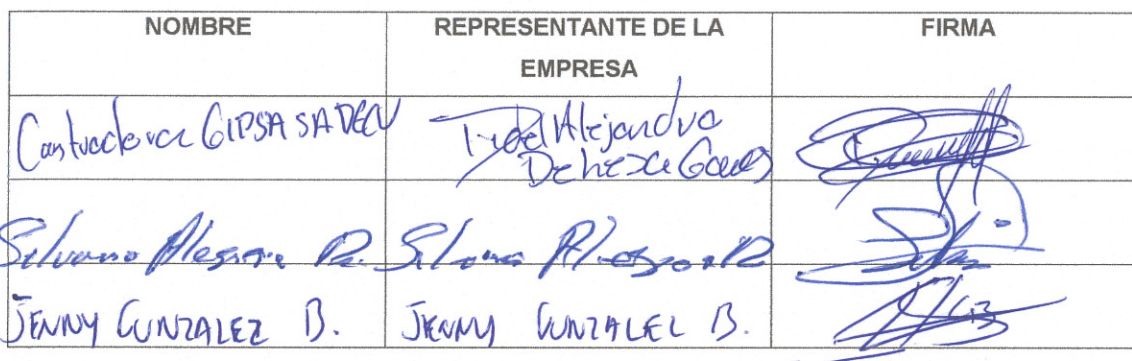 NOMBRE
REPRESENTANTE DE LA
EMPRESA
FIRMA
Constructora GIPSA SA DE CV
Fidel Alejandro
Deheza
Silvano
Silvano
JENNY GONZALEZ B.
JENNY GONZALEZ B.